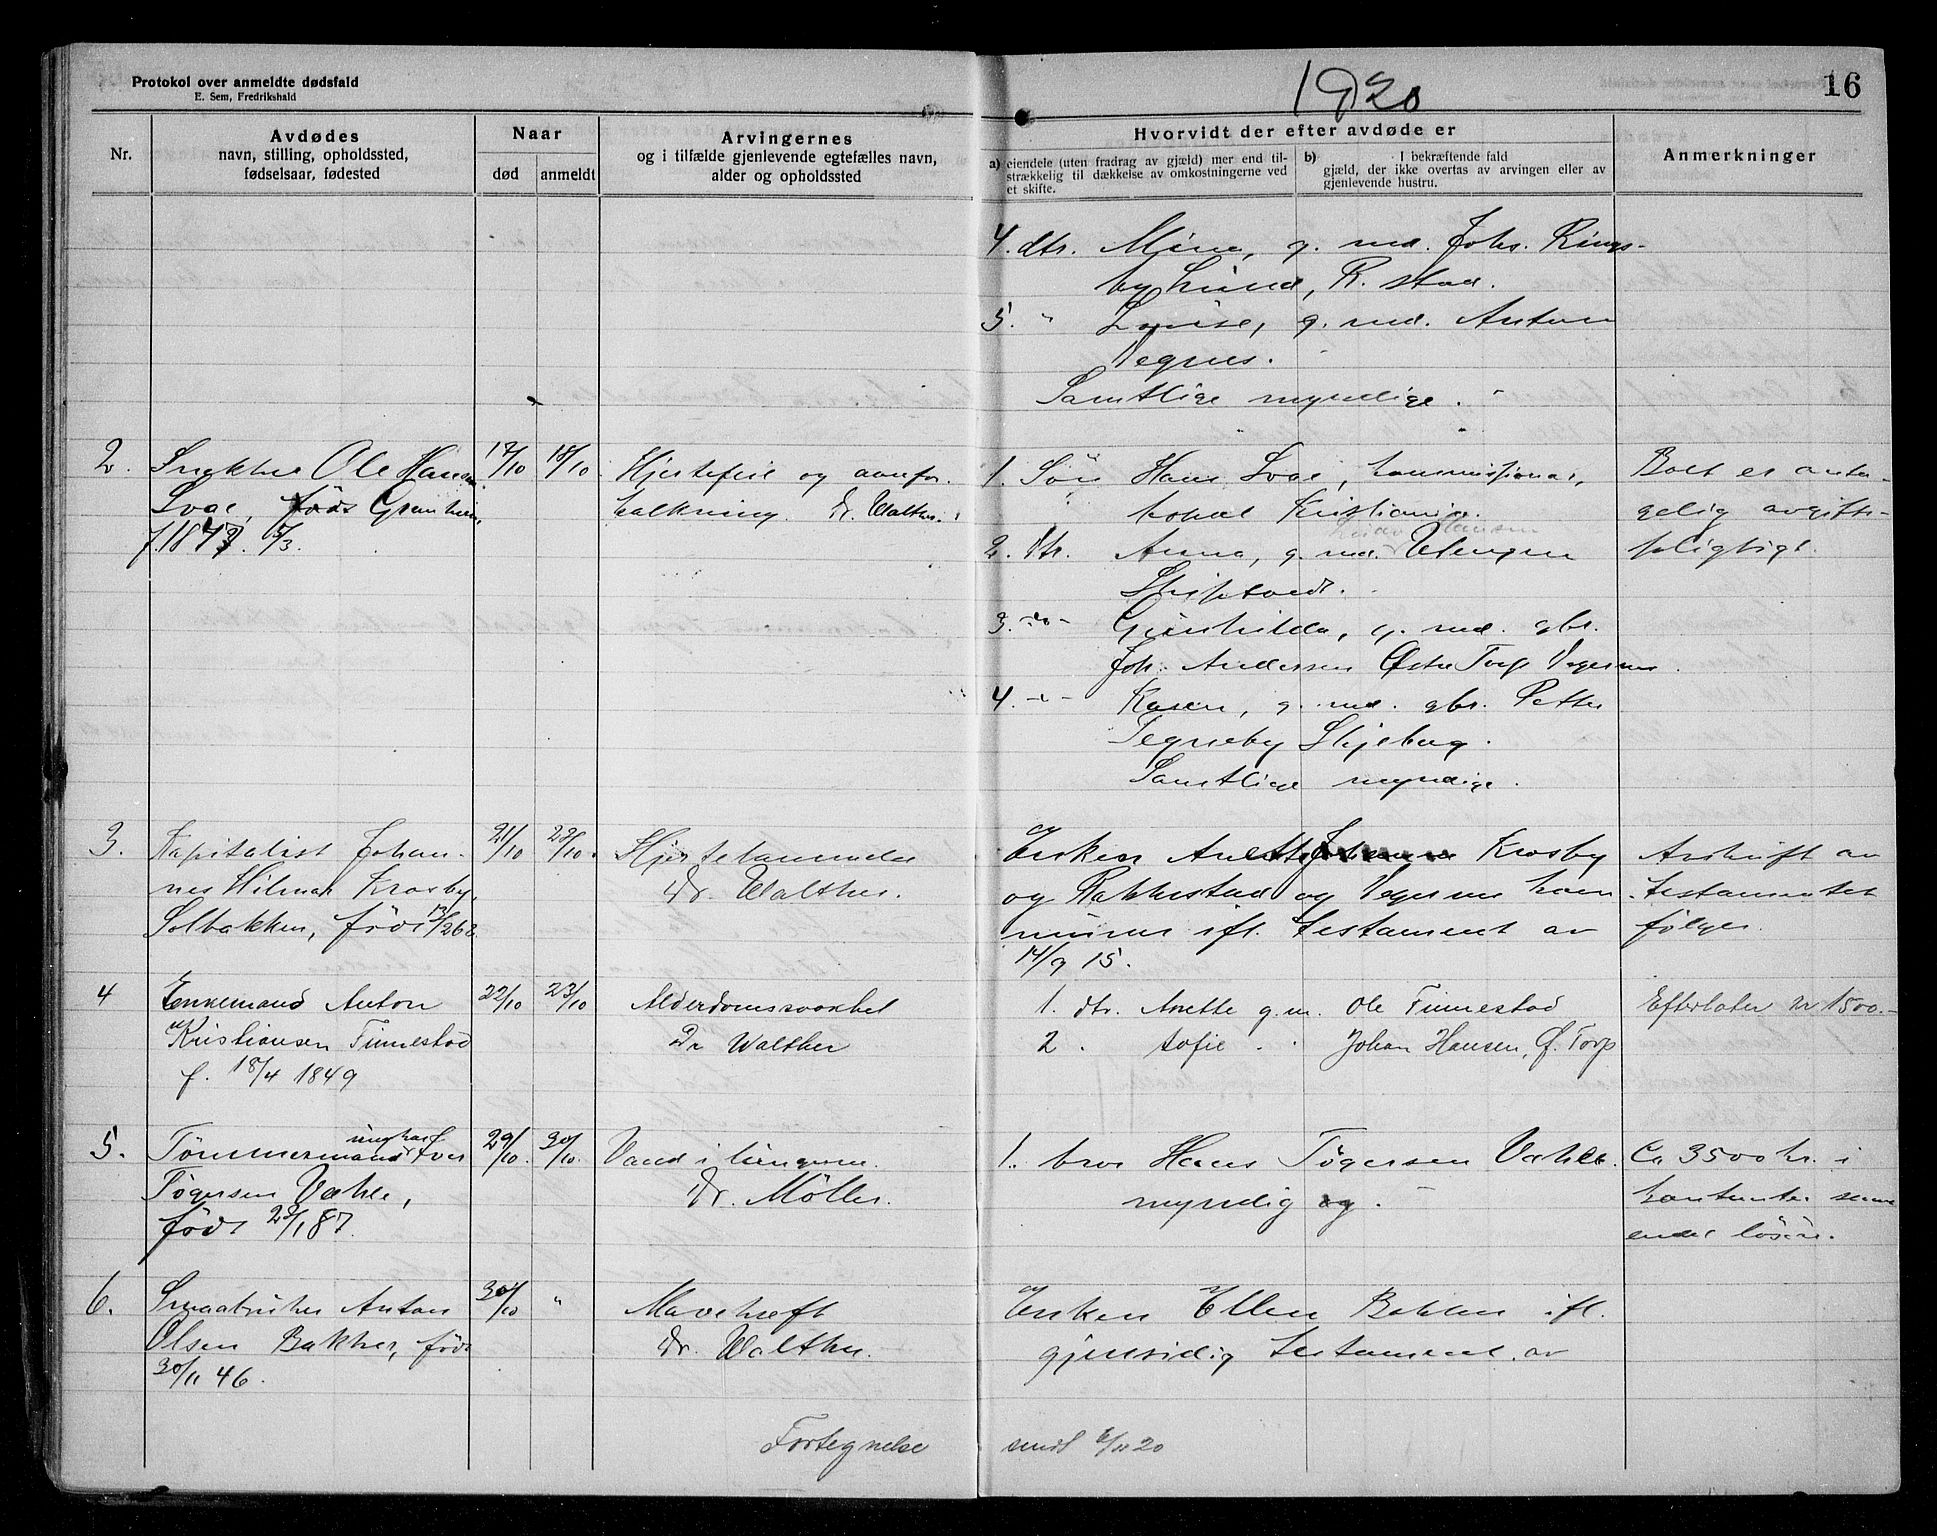 Protokol over anmeldte dødsfald
E. Sem, Fredrikshald
1920
16
Nr.
Avdødes
navn, stilling, opholdssted,
fødselsaar, fødested
Naar
død
anmeldt
Arvingernes
og i tilfælde gjenlevende egtefælles navn,
alder og opholdssted
Hvorvidt der efter avdøde er
a) eiendele (uten fradrag av gjæld) mer end til-
strækkelig til dækkelse av omkostningerne ved
et skifte.
b) I bekræftende fald
gjæld, der ikke overtas av arvingen eller av
gjenlevende hustru.
Anmerkninger
4. dtr. Mina, g. med. Johs. Rings-
by Lund, R.stad.
5. " Lovise, g. med. Anton
Vegnes.
Samtlige myndige.
2.
Ole Hansen
Svae, føds Grønheim,
f. 1847. 5/3.
17/10
18/10
Hjertefeil og aarefor-
kalkning. Dr. Walther.
1. Søn Hans Svae,
Kristiania.
2. dtr. Anna, g. med. Hansen Ulengen
Skiptvedt.
3. -do- Gunhilda, g. med. gbr.
Joh. Andersen Østre Torp Vegernes.
4. -"- Karen, g. med. gbr. Petter
Tegneby Skjeberg.
Samtlige myndige.
Boet er anta-
gelig avgifts-
pligtigt.
3.
Kapitalist Johan-
nes Hilmar Krosby,
Solbakken, født 13/2 62
21/10
22/10.
Hjertelammelse
Dr. Walther.
Enken Anette Krosby
og Rakkestad og Vegernes kom
muner ifl. testament av
14/9 15.
Avskrift av
testamentet
følger.
4
Enkemand Anton
Kristiansen Finnestad
f. 18/4 1849
22/10
23/10
Alderdomssvakhet
Dr Walther
1. dtr. Anette g.m. Ole Finnestad
2 . Sofie . . Johan Hansen, Ø. Torp
Efterlater kr 1500.-
5.
Tømmermand ungkar Iver
Tøgersen Væhle,
født
29/10.
30/10.
Vand i lungerne.
Dr. Møller.
1. bror Hans Tøgersen Væhle.
myndig og.
Ca 3500 kr. i
kontanter samt
endel løsøre.
6.
Smaabruker Anton
Olsen Bakker, født
30/11 46.
30/10
"
Mavekræft
Dr. Walther
Enken Ellen Bakker ifl.
gjensidig testament av
Fortegnelse
sendt 6/11 20